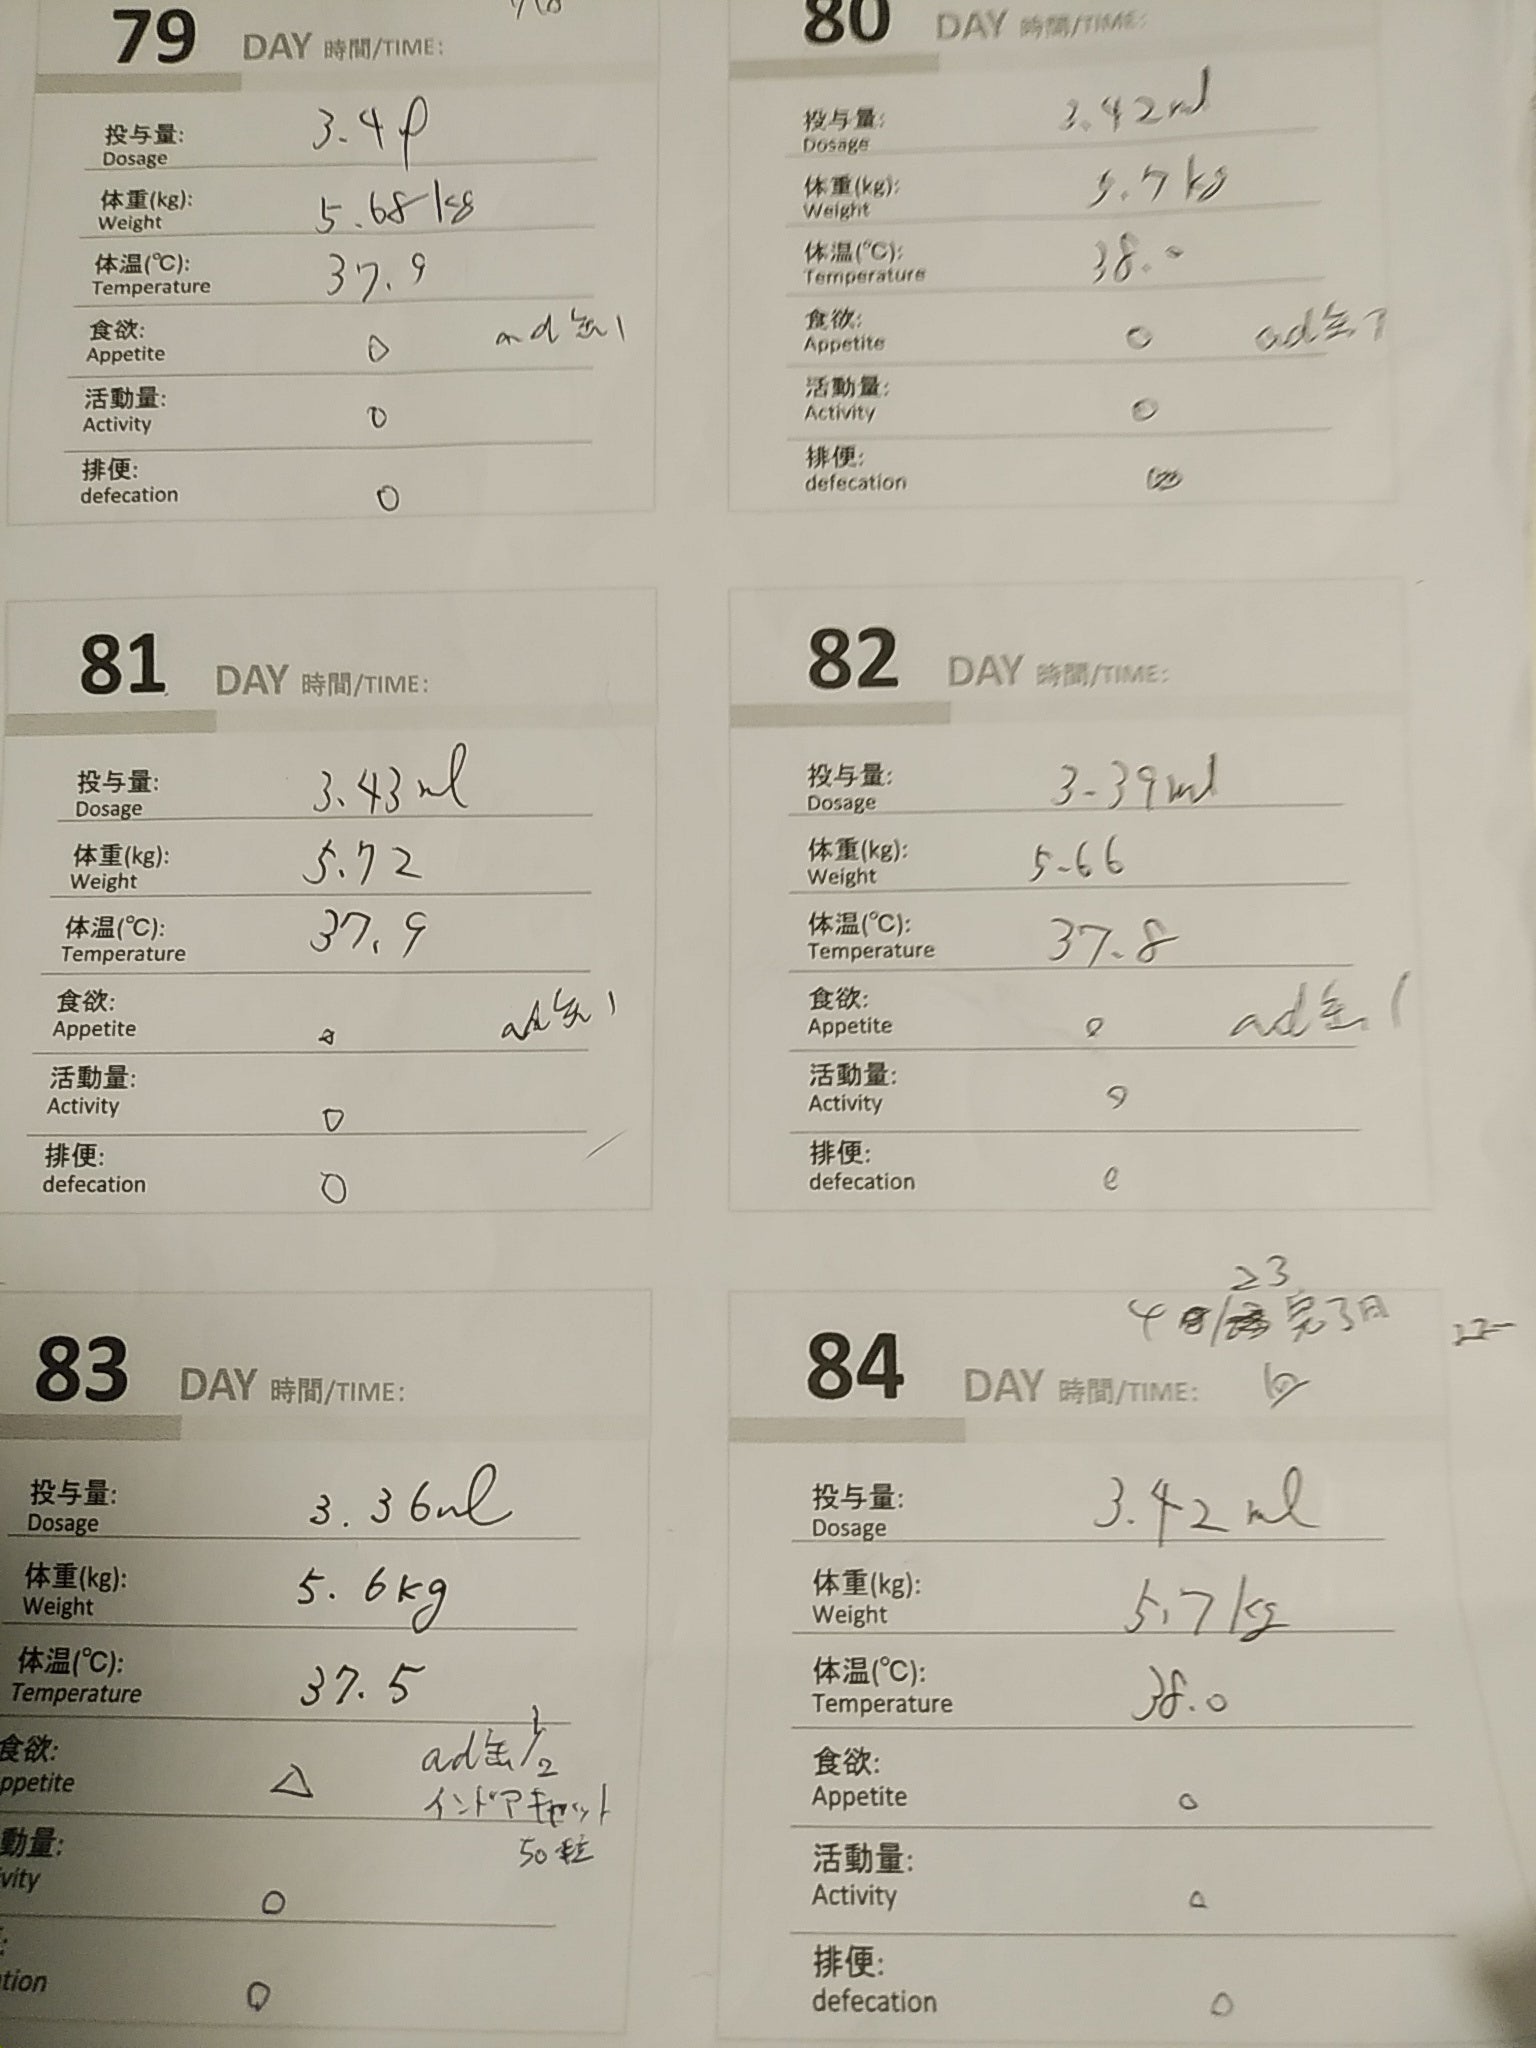 79 DAY 時間/TIME:
投与量: 3.4
Dosage
体重(kg): 5.68kg
Weight
体温(℃): 37.9
Temperature
食欲: ○ ad缶1
Appetite
活動量: ○
Activity
排便: ○
defecation
80 DAY 時間/TIME:
投与量: 3.42ml
Dosage
体重(kg): 5.7kg
Weight
体温(℃): 38.0
Temperature
食欲: ○ ad缶1
Appetite
活動量: ○
Activity
排便:
defecation
81 DAY 時間/TIME:
投与量: 3.43ml
Dosage
体重(kg): 5.72
Weight
体温(℃): 37.9
Temperature
食欲: ○ ad缶1
Appetite
活動量: ○
Activity
排便: ○
defecation
82 DAY 時間/TIME:
投与量: 3.39ml
Dosage
体重(kg): 5.66
Weight
体温(℃): 37.8
Temperature
食欲: ○ ad缶1
Appetite
活動量: ○
Activity
排便: ○
defecation
83 DAY 時間/TIME:
投与量: 3.36ml
Dosage
体重(kg): 5.6kg
Weight
体温(℃): 37.5
Temperature
食欲: △ ad缶1/2
ppetite インドアキャット
50粒
動量: ○
vity
○
tion
23
4 / 完了日
84 DAY 時間/TIME:
投与量: 3.42ml
Dosage
体重(kg): 5.7kg
Weight
体温(℃): 38.0
Temperature
食欲: ○
Appetite
活動量: ○
Activity
排便: ○
defecation